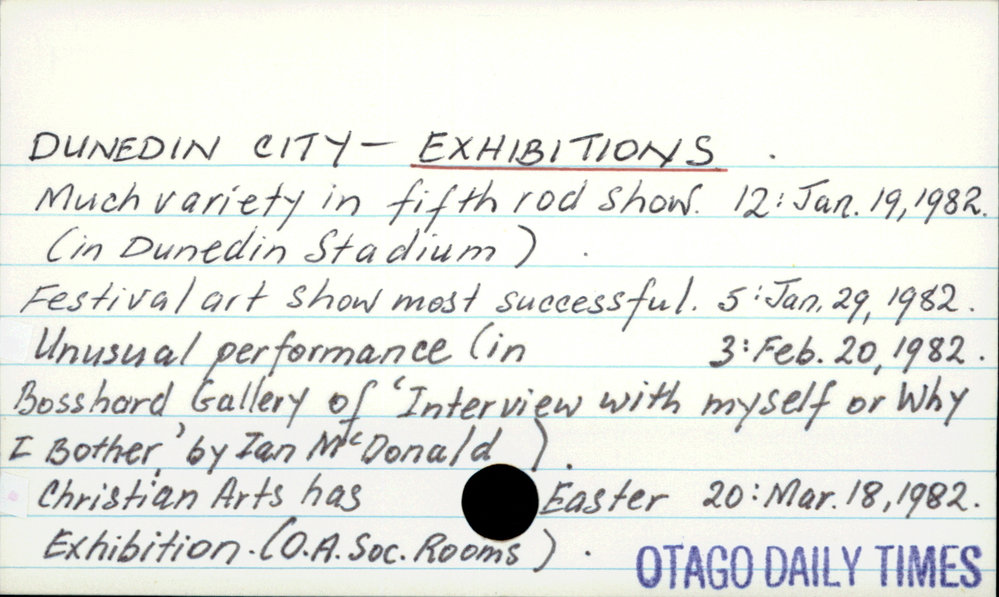 DUNEDIN CITY - EXHIBITIONS.
Much variety in fifth rod show. 12: Jan. 19, 1982.
(in Dunedin Stadium).
Festival art show most successful. 5: Jan. 29, 1982.
Unusual performance (in 3: Feb. 20, 1982.
Bosshard Gallery of 'Interview with myself or Why
I Bother,' by Ian McDonald).
Christian Arts has Easter 20: Mar. 18, 1982.
Exhibition. (O.A. Soc. Rooms).
OTAGO DAILY TIMES